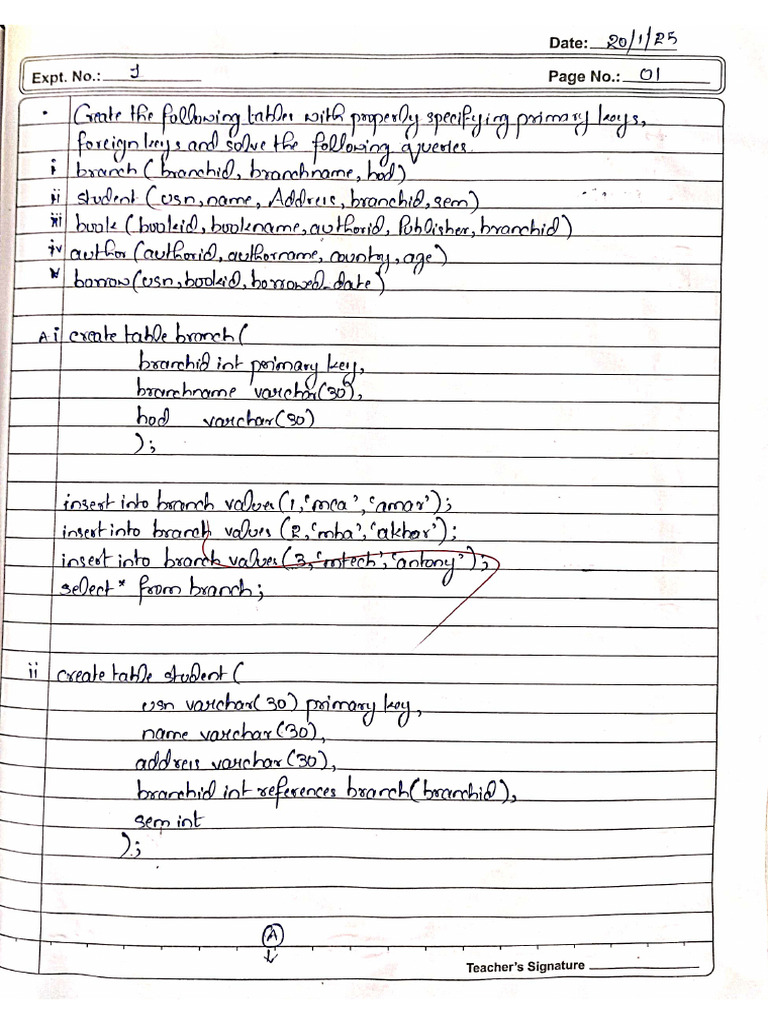 Date: 20/1/25
Expt. No.: 1
Page No.: 01
• Create the following tables with properly specifying primary keys,
foreign keys and solve the following queries.
i branch (branchid, branchname, hod)
ii student (usn, name, Address, branchid, sem)
iii book (bookid, bookname, authorid, Publisher, branchid)
iv author (authorid, authorname, country, age)
v borrow (usn, bookid, borrowed_date)
A i create table branch(
branchid int primary key,
branchname varchar(30),
hod varchar(30)
);
insert into branch values(1,'mca','amar');
insert into branch values (2,'mba','akbar');
insert into branch values(3,'mtech','antony');
select * from branch;
ii create table student (
usn varchar(30) primary key,
name varchar(30),
address varchar(30),
branchid int references branch(branchid),
sem int
);
A
Teacher's Signature